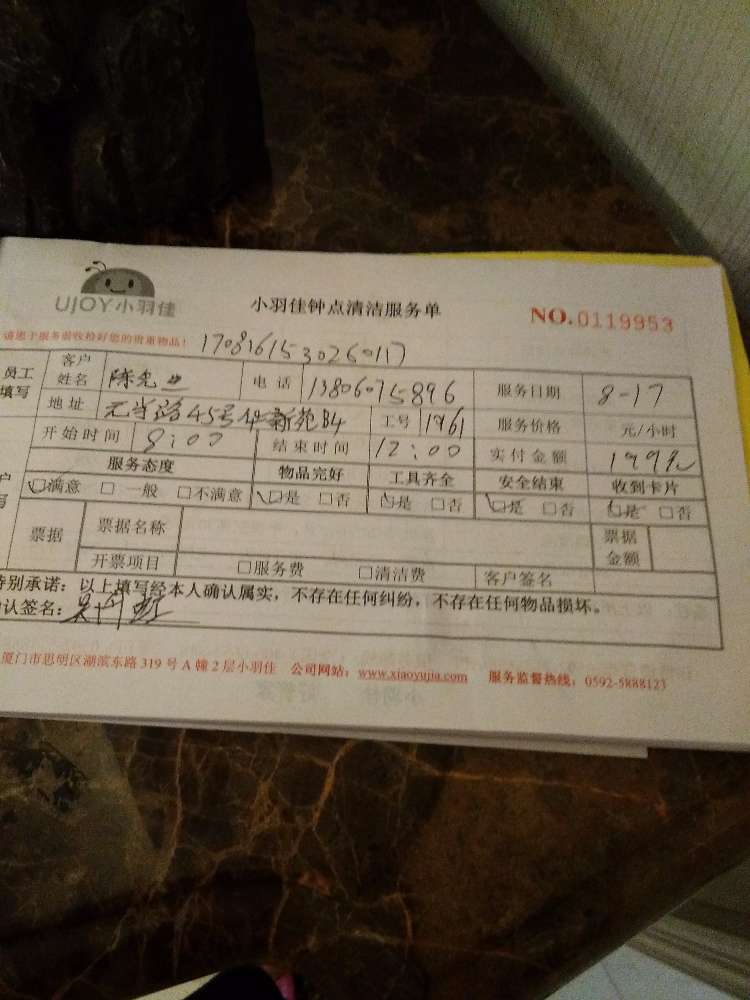 UJOY小羽佳 小羽佳钟点清洁服务单 NO.0119953
请您于服务前收检好您的贵重物品！ 1708161530260117
员工填写 客户姓名 陈 电话 13806075896 服务日期 8-17
地址 45号华新苑B4 工号 1961 服务价格 元/小时
开始时间 8:00 结束时间 12:00 实付金额 199元
服务态度 物品完好 工具齐全 安全结束 收到卡片
□满意 □一般 □不满意 □是 □否 □是 □否 □是 □否 □是 □否
票据 票据名称 票据金额
开票项目 □服务费 □清洁费 客户签名
特别承诺：以上填写经本人确认属实，不存在任何纠纷，不存在任何物品损坏。
确认签名：
厦门市思明区湖滨东路319号A幢2层小羽佳 公司网站：www.xiaoyujia.com 服务监督热线：0592-5888123